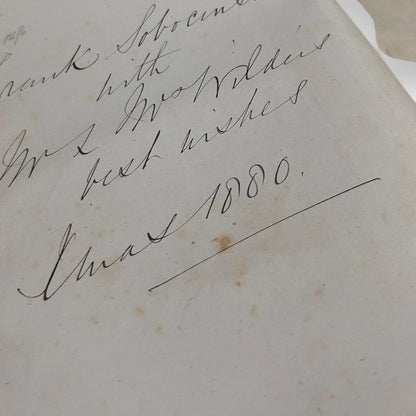 rank Sobocins
with
Mr & Mrs Wilder's
best wishes
Xmas 1880.